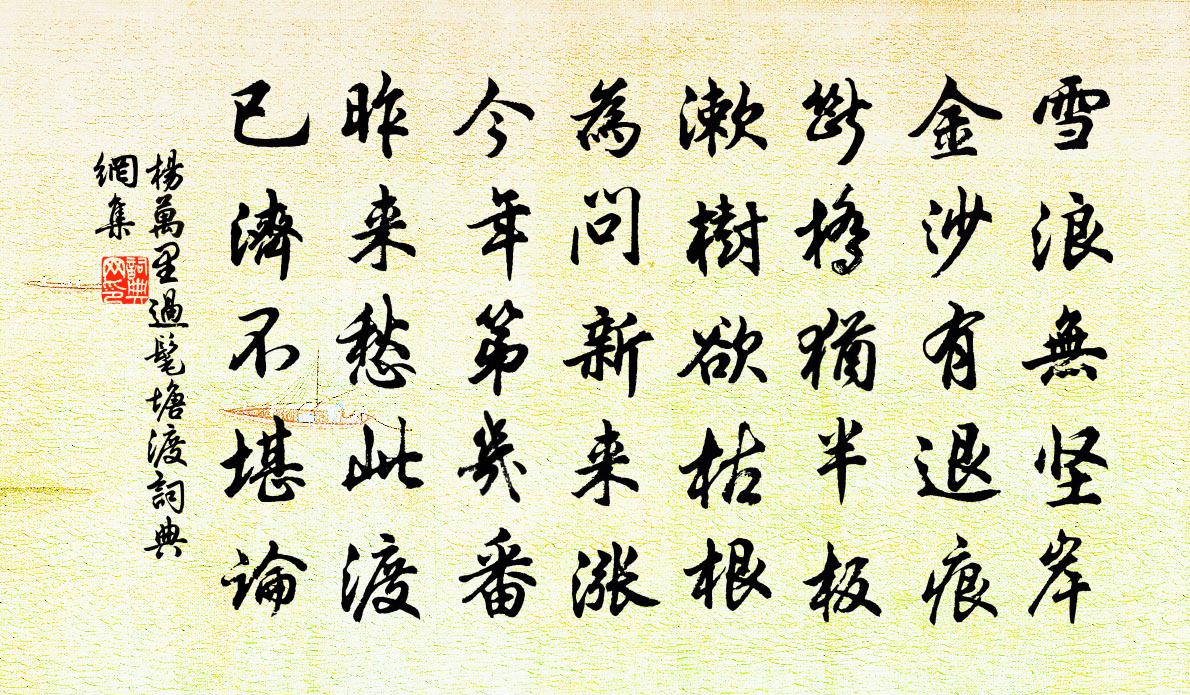 雪浪無坚岸
金沙有退痕
斷橋猶半板
漱樹欲枯根
為問新来漲
今年第幾番
昨来愁此渡
已濟不堪論
楊萬里過髦塘渡詞典
網集
詞典
网